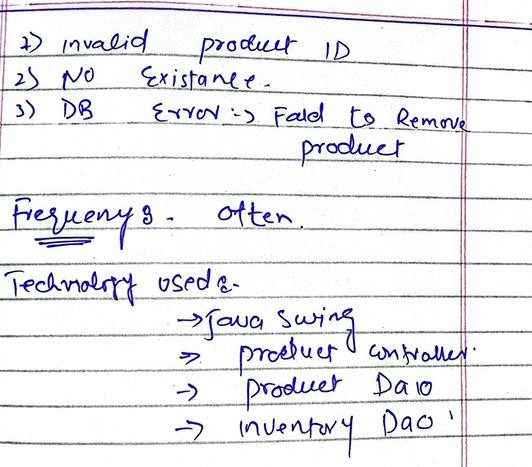 1) invalid product ID
2) NO Existance.
3) DB Error :-> Faild to Remove
product
Frequeny :- Often.
Technology used :-
-> Java Swing
-> product controller.
-> product Dao
-> inventory Dao